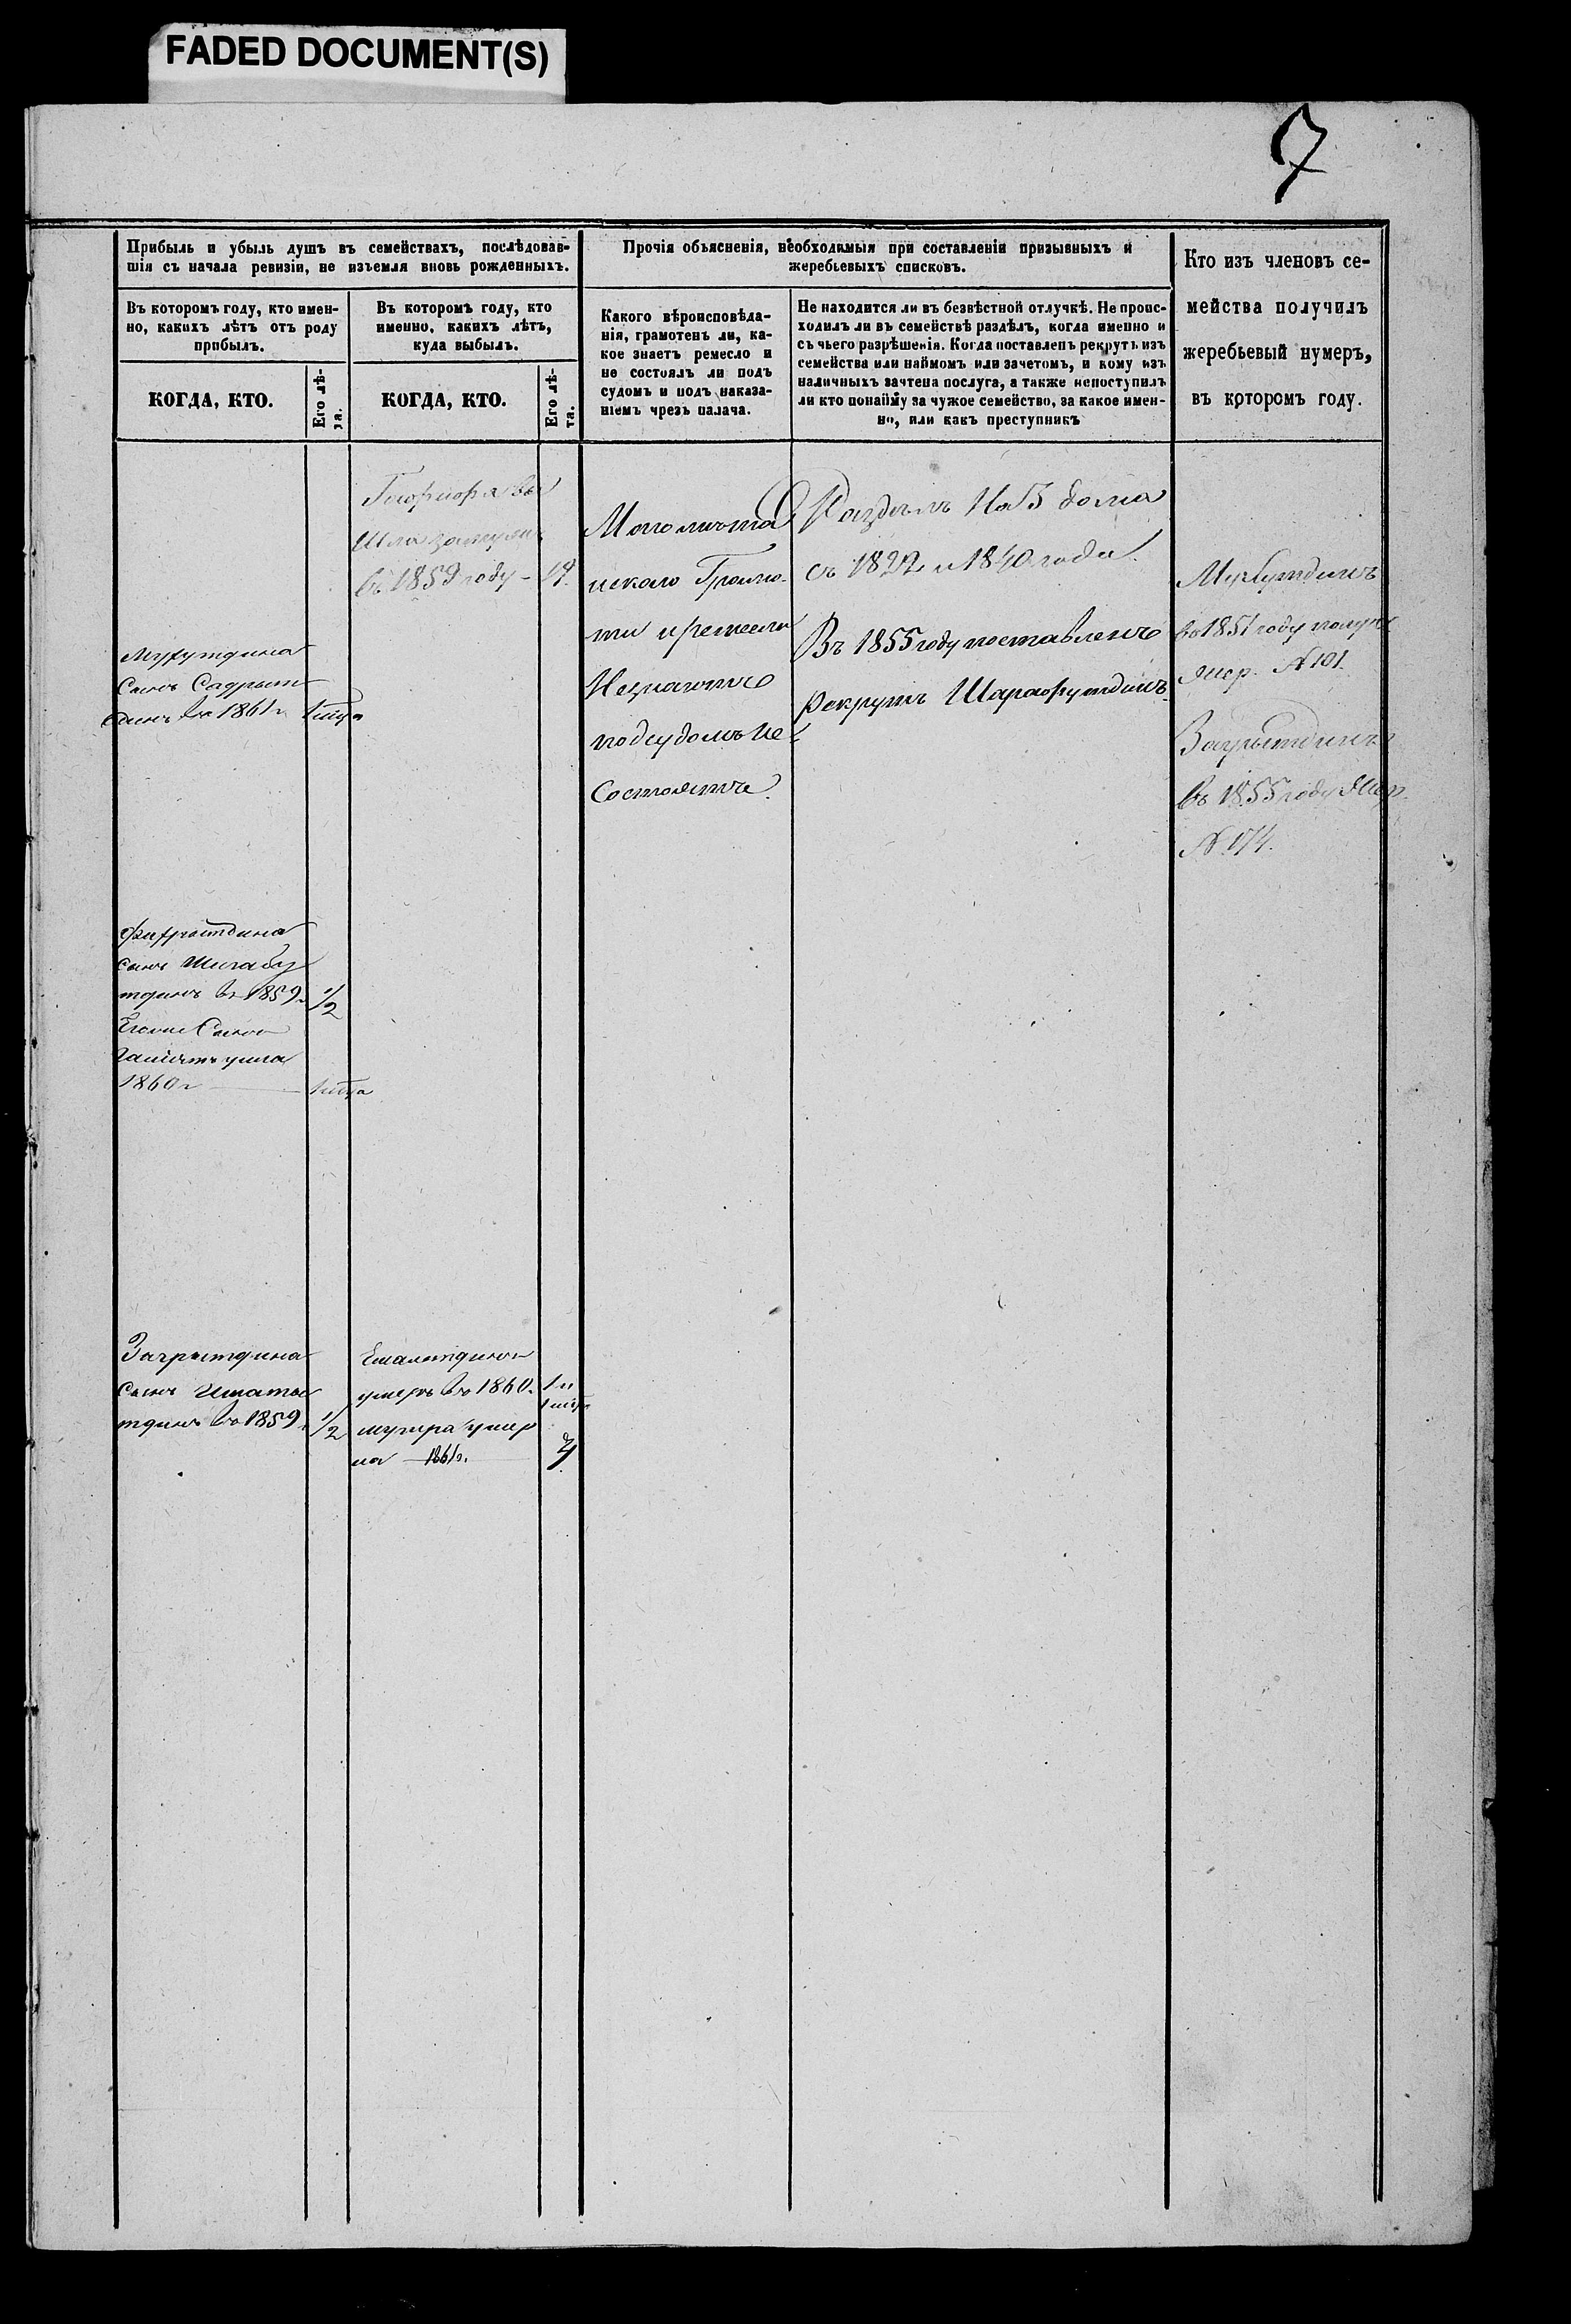 FADED DOCUMENT(S)
7
Прибыль и убыль душъ въ семействахъ, послѣдовав-
шія съ начала ревизіи, не изъемля вновь рожденныхъ.
Въ которомъ году, кто имен-
но, какихъ лѣтъ отъ роду
прибылъ.
КОГДА, КТО.
Его лѣ-
та.
Въ которомъ году, кто
именно, какихъ лѣтъ,
куда выбылъ.
КОГДА, КТО.
Его лѣ-
та.
Прочія объясненія, необходимыя при составленіи призывныхъ и
жеребьевыхъ списковъ.
Какого вѣроисповѣда-
нія, грамотенъ ли, ка-
кое знаетъ ремесло и
не состоялъ ли подъ
судомъ и подъ наказа-
ніемъ чрезъ палача.
Не находится ли въ безвѣстной отлучкѣ. Не проис-
ходилъ ли въ семействѣ раздѣлъ, когда именно и
съ чьего разрѣшенія. Когда поставленъ рекрутъ изъ
семейства или наймомъ или зачетомъ, и кому изъ
наличныхъ зачтена послуга, а также непоступилъ
ли кто понайму за чужое семейство, за какое имен-
но, или какъ преступникъ
Кто изъ членовъ се-
мейства получилъ
жеребьевый нумеръ,
въ которомъ году.
вы
шла замужъ
въ 1859 году - 19.
сынъ Садрыт
динъ въ 1861 г
сынъ Шигабу
тдинъ въ 1859 г 1/2
Егоже Сынъ
1860 г
сынъ
тдинъ въ 1859 г 1/2
умеръ въ 1860 г
умер
ла 1861 г.
Магомета
нскаго Грамо-
ты и ремесла
Незнаютъ
подсудомъ не
Состоятъ.
Раздѣлъ На 5 дома
съ 1822 и 1840 года.
Въ 1855 году поставленъ
рекрутъ Шарафутдинъ.
въ 1851 году получ
жер. № 101.
въ 1855 году жер.
№ 174.